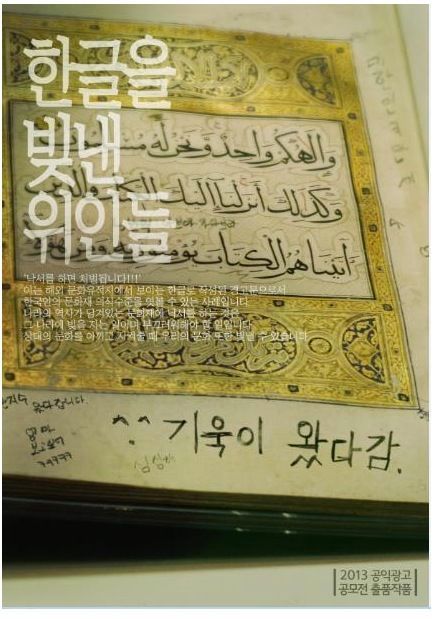 한글을
빛낸
위인들
'낙서를 하면 처벌됩니다!!!'
이는 해외 문화유적지에서 보이는 한글로 작성된 경고문으로서
한국인의 문화재 의식수준을 엿볼 수 있는 사례입니다
나라의 역사가 담겨있는 문화재에 낙서를 하는 것은
그 나라에 빚을 지는 일이며 부끄러워해야 할 일입니다
상대의 문화를 아끼고 사랑할 때 우리의 문화 또한 빛낼 수 있습니다
وإلهنا وإلهكم واحد ونحن له
وكذلك أنزلنا إليك الكتاب فالذين
آتيناهم الكتاب يؤمنون به
왔다갑니다.
엄마
ㅋㅋㅋㅋ
^^ 기욱이 왔다감.
심심해
2013 공익광고
공모전 출품작품